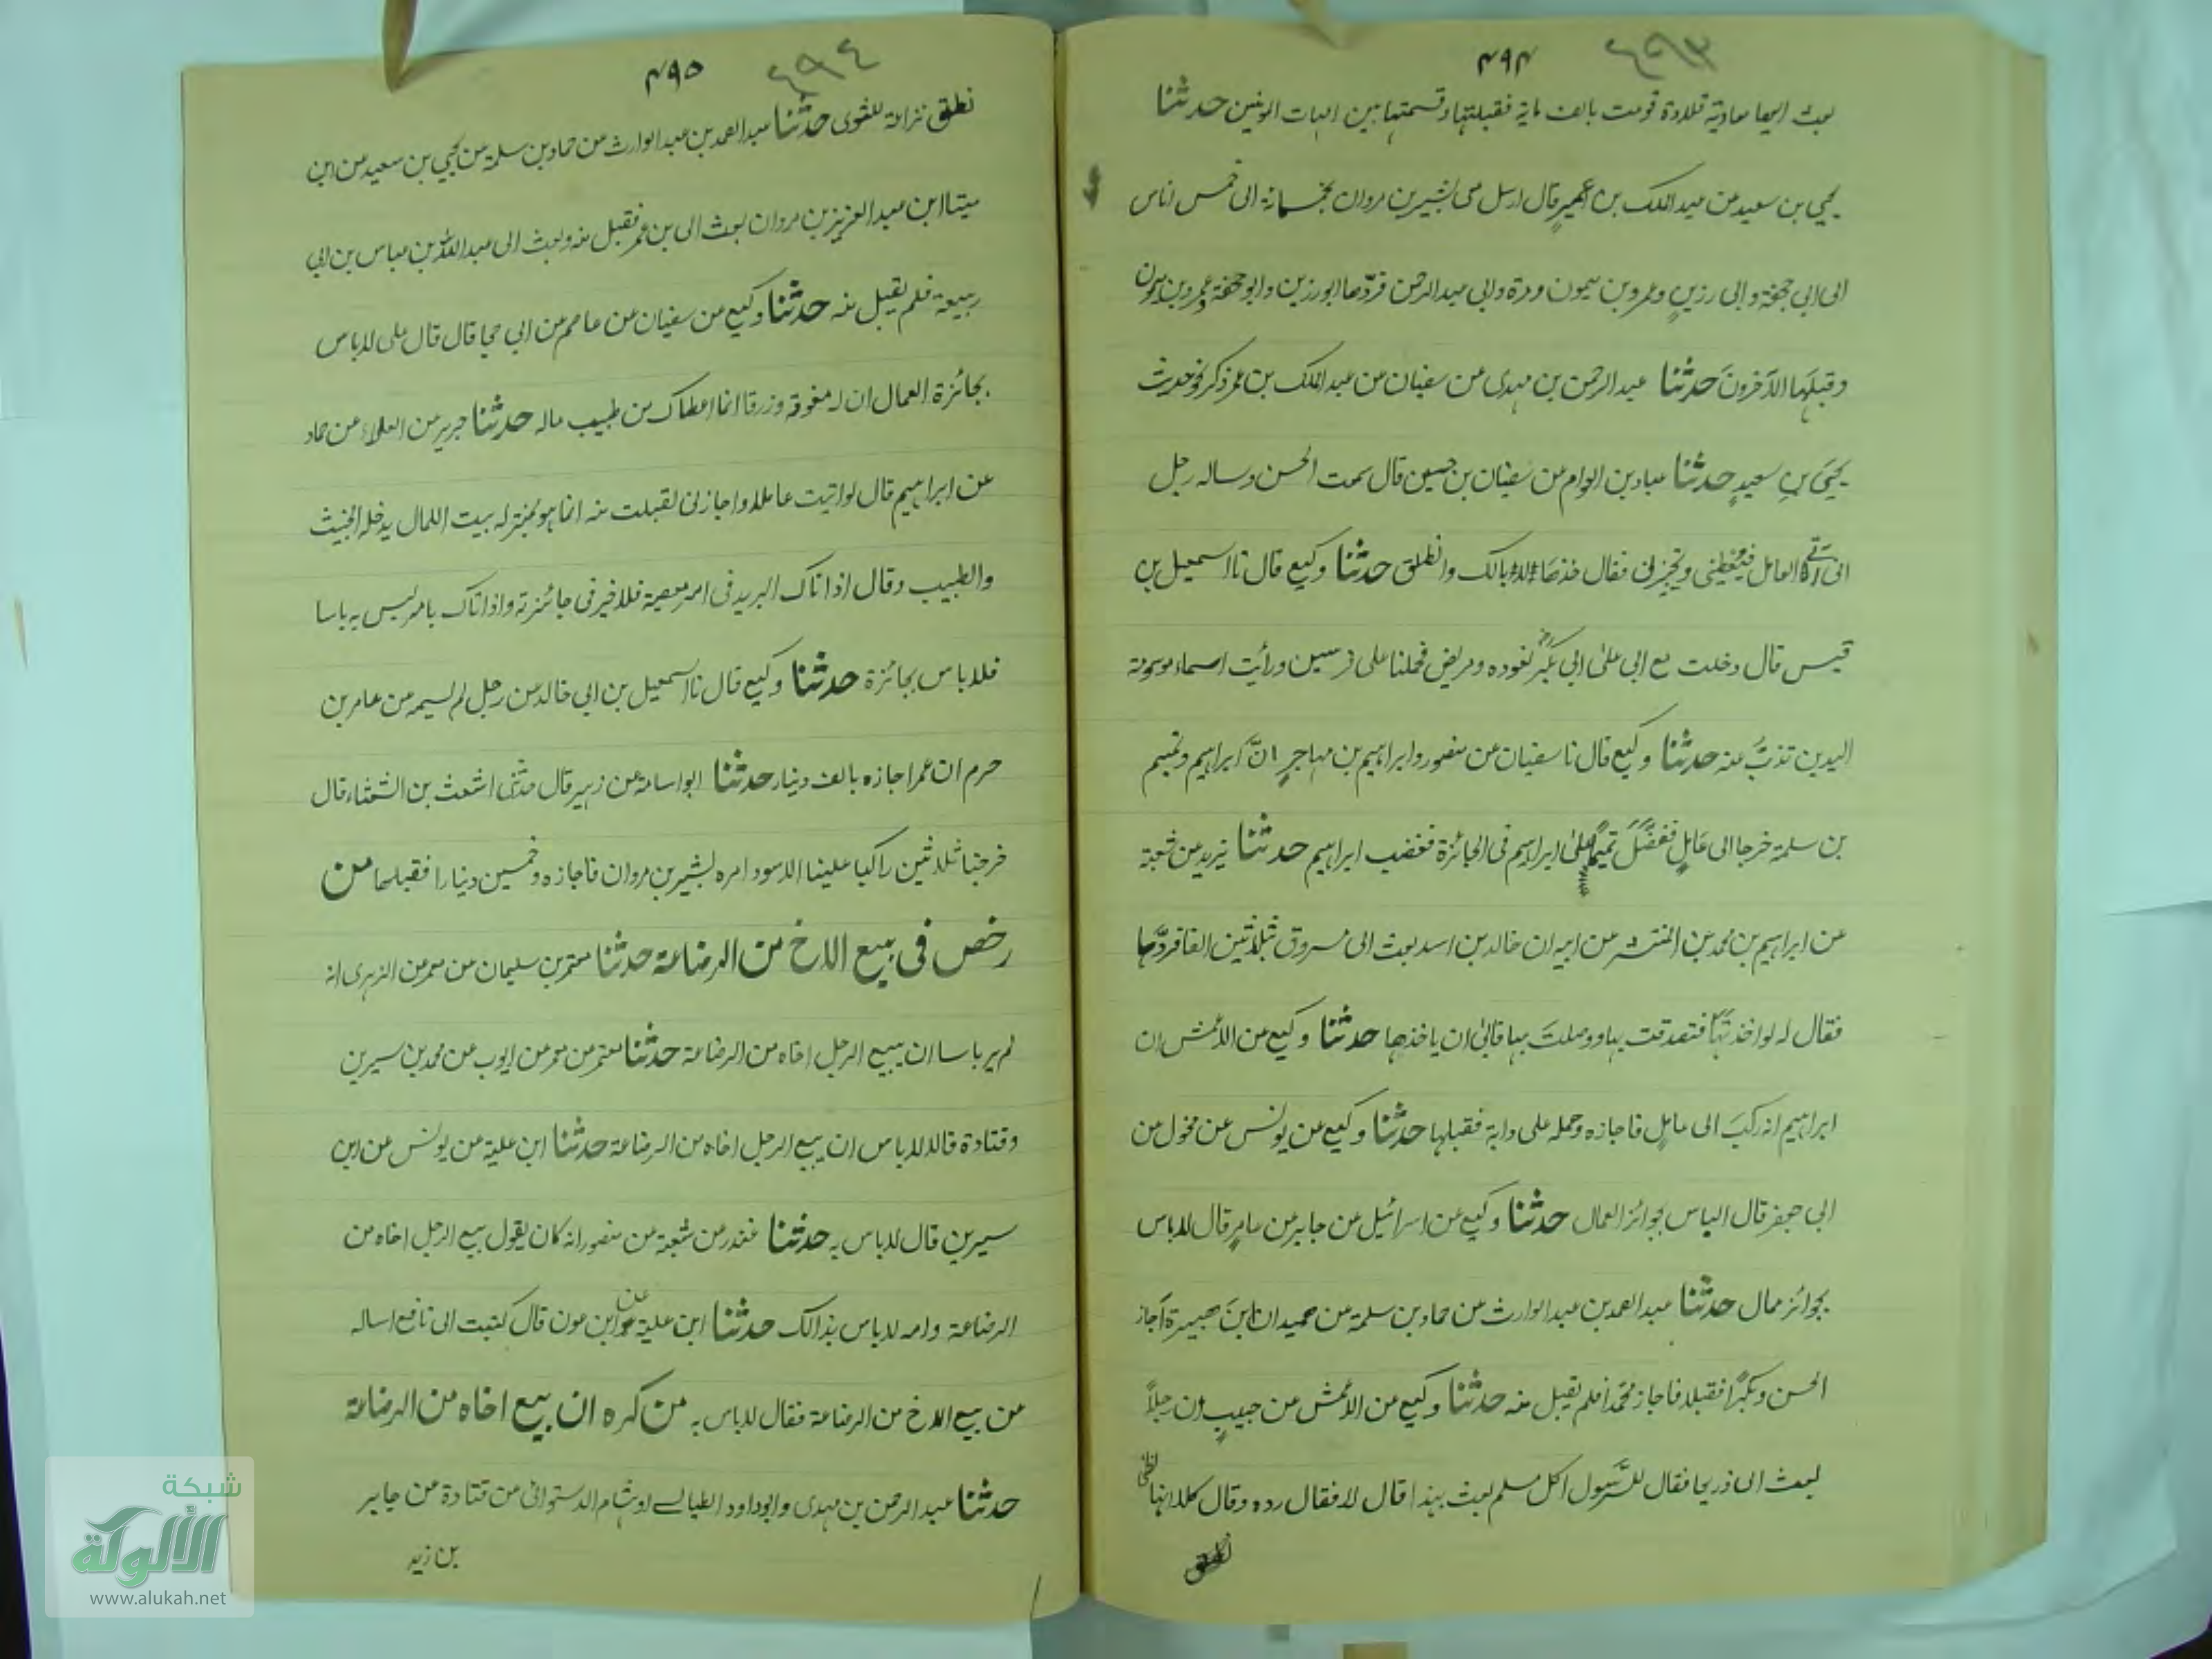 ٤٩٣
٤٩٤
بعث اليها معاوية قلادة قومت بالف ماية فقبلتها وقسمتها بين امهات المومنين حدثنا
يحيي بن سعيد عن عبد الملك بن عمير قال ارسل معي بشير بن مروان بخمسمائة الى خمس اناس
الى ابي جحفة والى رزين وعمرو بن ميمون ومرة وابي عبد الرحمن فردها ابو رزين وابو جحفة وعمرو بن ميمون
وقبلها الآخرون حدثنا عبد الرحمن بن مهدى عن سفيان عن عبد الملك بن عمر ذكر نحو حديث
يحيى بن سعيد حدثنا عباد بن العوام عن سفيان بن حسين قال سمعت الحسن وساله رجل
العامل فيعطينى ويجيزنى فقال خذها لا ابا لك وانطلق حدثنا وكيع قال نا اسمعيل بن
قيس قال دخلت مع ابى على ابى بكر نعوده ومريض فحملنا على فرسين ورأيت اسماء موسومة
اليدين تذب عنه حدثنا وكيع قال نا سفيان عن منصور وابراهيم بن مهاجر ان ابراهيم وتميم
بن سلمة خرجا الى عامل ففضل تميما على ابراهيم فى الجائزة فغضب ابراهيم حدثنا يزيد عن شعبة
عن ابراهيم بن محمد بن المنتشر عن ابيه ان خالد بن اسد بعث الى مسروق بثلاثين الفا فردها
فقال له لو اخذتها فتصدقت بها ووصلت بها فابى ان ياخذها حدثنا وكيع عن الاعمش ان
ابراهيم انه ركب الى عامل فاجازه وحمله على دابة فقبلها حدثنا وكيع عن يونس عن مخول عن
ابي جعفر قال الباس بجوائز العمال حدثنا وكيع عن اسرائيل عن جابر عن عامر قال لاباس
بجوائز عمال حدثنا عبد الصمد بن عبد الوارث عن حماد بن سلمة عن حميد ان ابن هبيرة اجاز
الحسن وبكرا فقبلا فاجاز محمدا فلم يقبل منه حدثنا وكيع عن الاعمش عن حبيب ان رجلا
بعث الى ذر بها فقال للرسول اكل مسلم بعث بهذا قال لا فقال رده وقال كلا انها لظى
٤٩٤
٤٩٥
نطلق نزاعة للشوى حدثنا عبد الصمد بن عبد الوارث عن حماد بن سلمة عن يحيي بن سعيد عن ابن
ميتا ابن عبد العزيز بن مروان بعث الى بن عمر فقبل منه وبعث الى عبد الله بن عباس بن ابي
ربيعة فلم يقبل منه حدثنا وكيع عن سفيان عن عاصم عن ابي حيا قال قال على لاباس
بجائزة العمال ان له معونة ورزقا انما اعطاك من طبيب ماله حدثنا جرير عن العلاء عن حماد
عن ابراهيم قال لو اتيت عاملا واجازنى لقبلت منه انما هو بمنزله بيت المال يدخله الخبيث
والطبيب وقال اذا اتاك البريد فى امر معصية فلا خير فى جائزته واذا اتاك بامر ليس به باسا
فلا باس بجائزة حدثنا وكيع قال نا اسمعيل بن ابى خالد عن رجل لم يسمه عن عامر بن
حرم ان عمرا اجازه بالف دينار حدثنا ابو اسامة عن زهير قال حدثنى اشعث بن الشعثاء قال
خرجنا ثلاثين راكبا علينا الاسود امره بشير بن مروان فاجازه وخمسين دينارا فقبلها من
رخص فى بيع الاخ من الرضاعة حدثنا معتمر بن سليمان عن معمر عن الزهرى انه
لم ير باسا ان يبيع الرجل اخاه من الرضاعة حدثنا معتمر عن معمر عن ايوب عن محمد بن سيرين
وقتادة قالا لاباس ان يبيع الرجل اخاه من الرضاعة حدثنا ابن علية عن يونس عن ابن
سيرين قال لاباس به حدثنا غندر عن شعبة عن منصور انه كان يقول يبيع الرجل اخاه من
الرضاعة وامه لاباس بذالك حدثنا ابن علية عن ابن عون قال كتبت الى نافع اساله
عن بيع الاخ من الرضاعة فقال لاباس به من كره ان يبيع اخاه من الرضاعة
حدثنا عبد الرحمن بن مهدى وابو داود الطيالسے لهشام الدستوائى عن قتادة عن جابر
بن زيد
شبكة
الألوكة
www.alukah.net